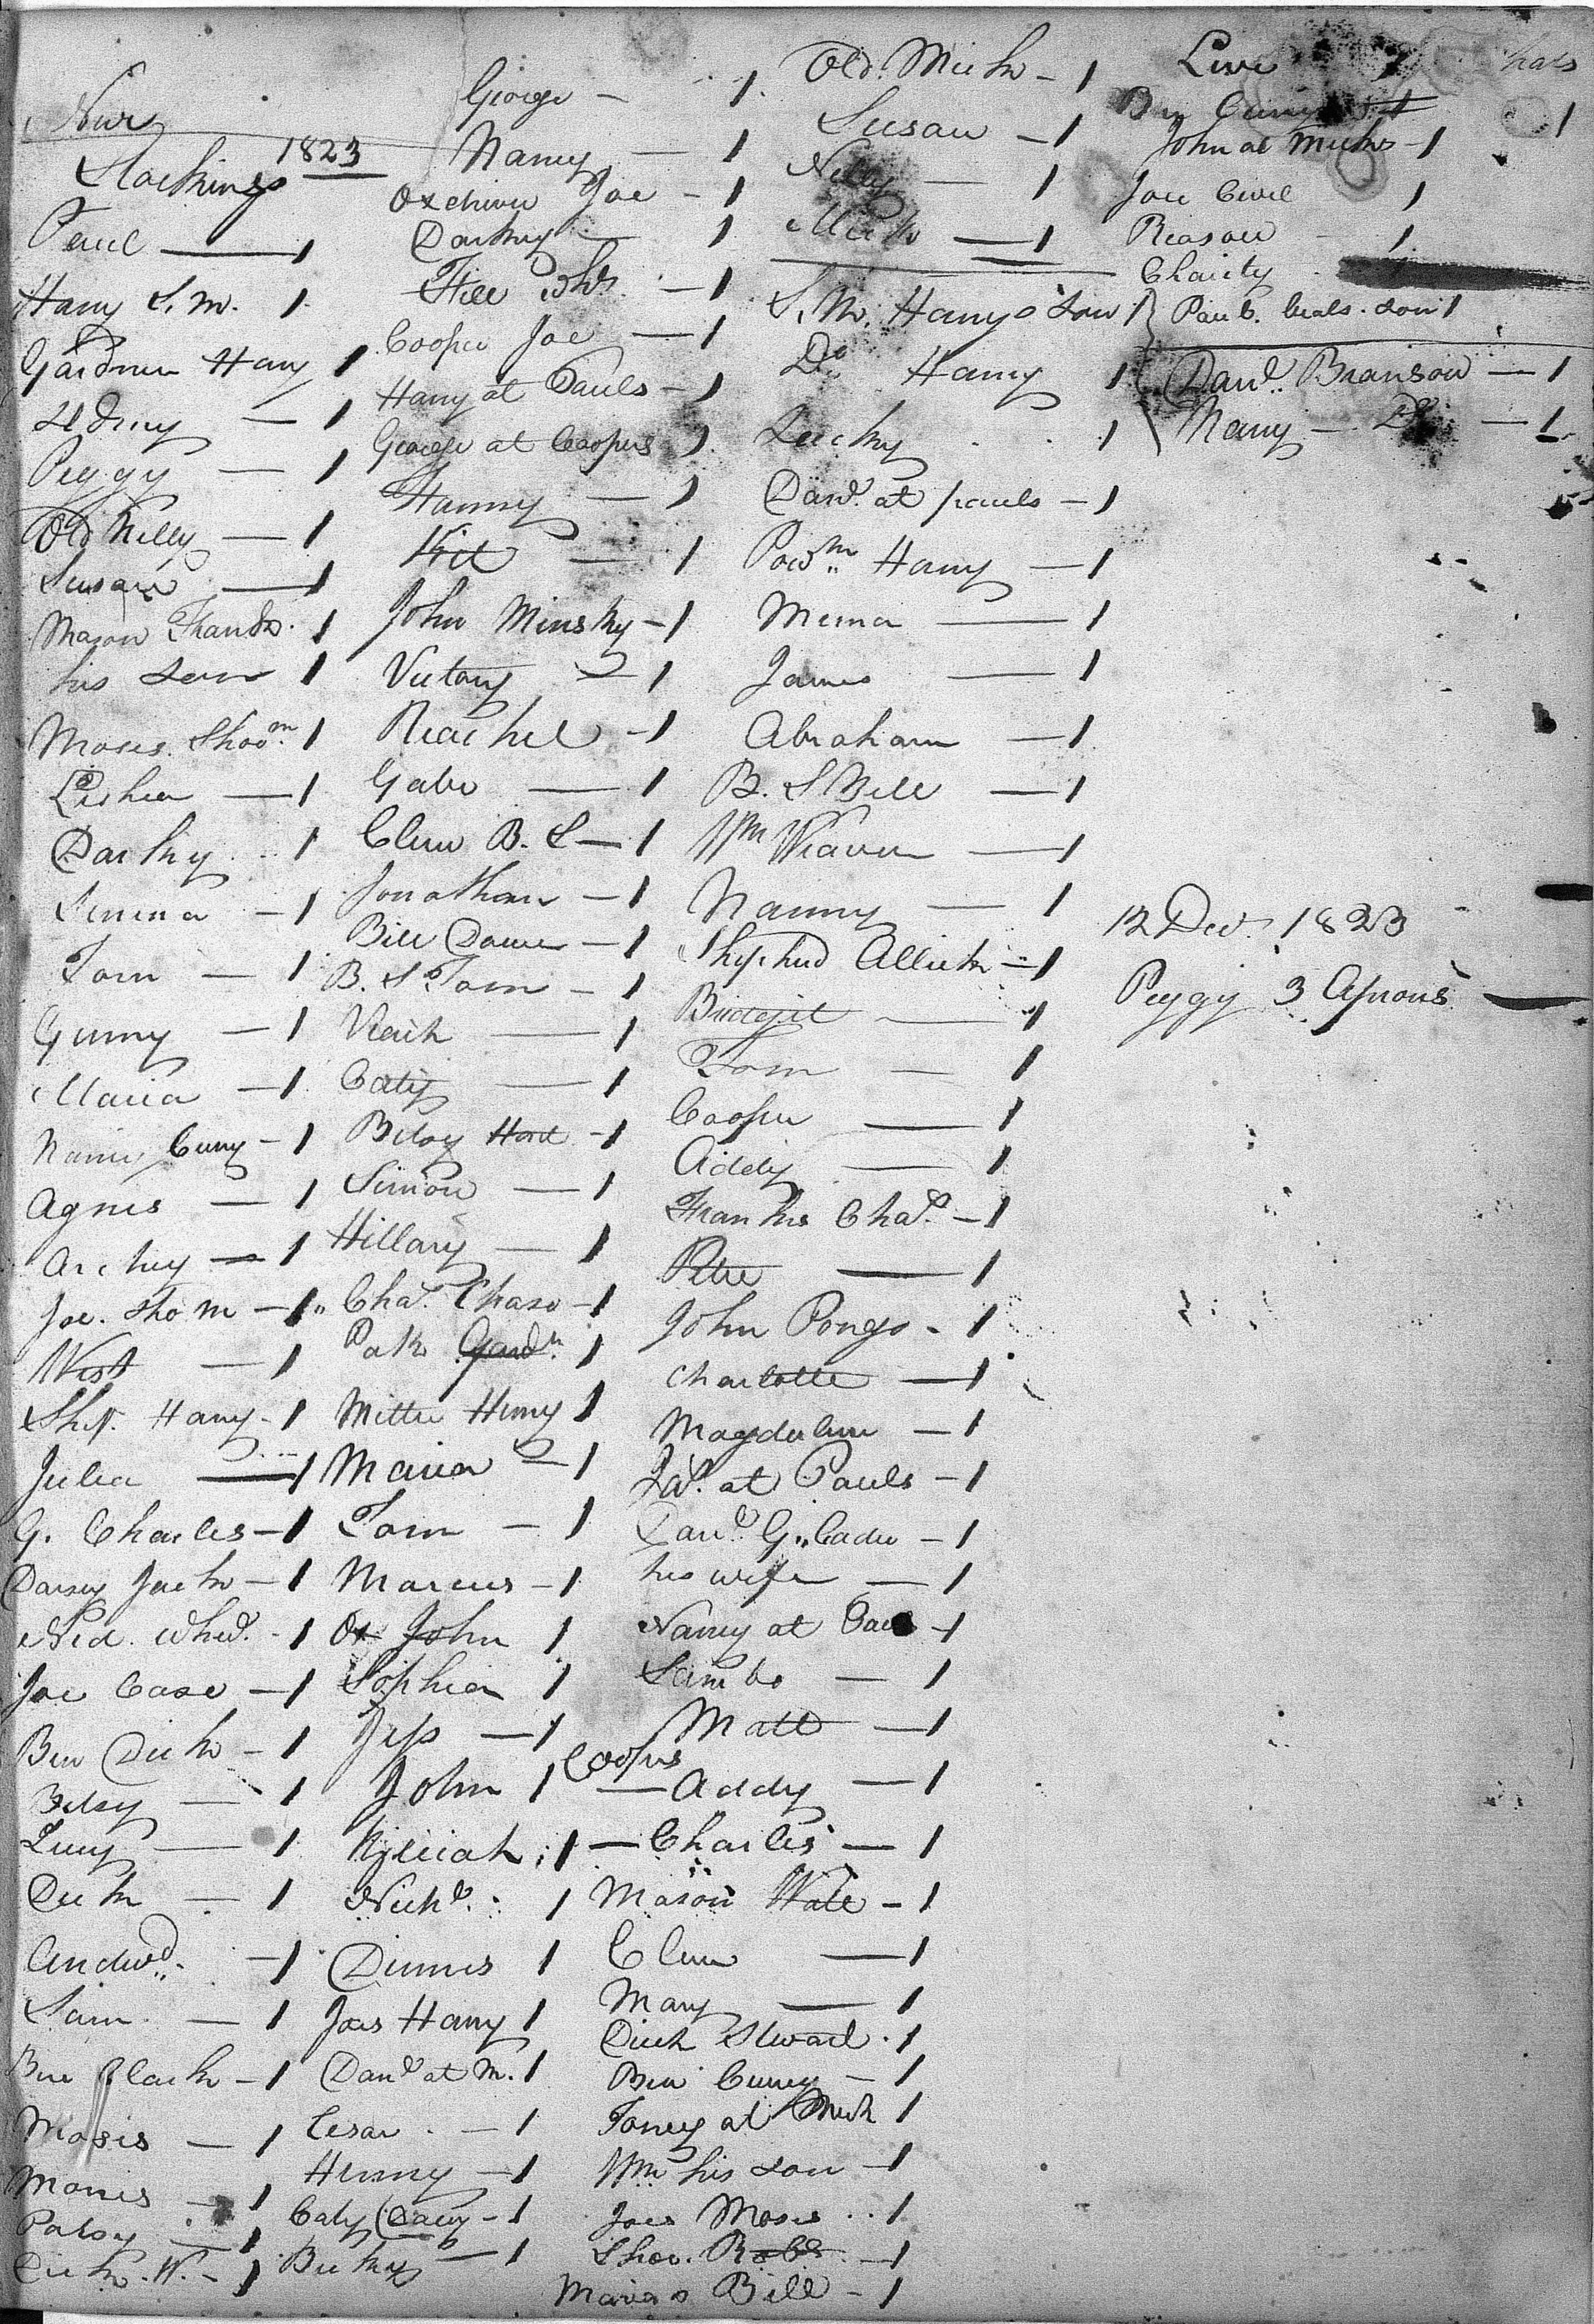 New
Stockings 1823
Paul — 1
Harry S. M. 1
Gardner Harry 1
Sidney — 1
Peggy — 1
Old Nelly — 1
Susan — 1
Mason Frank 1
his son 1
Moses Shoo.m 1
— 1
Darkey 1
— 1
Tom — 1
— 1
Maria — 1
Nancy Curry — 1
Agnes — 1
Archy — 1
Joe Sho m — 1
West — 1
Shep. Harry — 1
Julia — 1
G. Charles — 1
Darsey Jack — 1
Ned — 1
Joe Case — 1
Ben Dick — 1
Betsy — 1
Lucy — 1
Dick — 1
Andwd. — 1
Sam — 1
Black — 1
Moses — 1
Morris — 1
Patsy — 1
Dick W. — 1
George — 1
Nancy — 1
Oxdriver Joe — 1
Darkey — 1
1
Cooper Joe — 1
Harry at Pauls — 1
George at Coopers 1
Fanny — 1
Kit — 1
John Minsky — 1
Victory — 1
Reachel — 1
Gabe — 1
Clem B. S — 1
Jonathan — 1
Bill — 1
B. S Tom — 1
— 1
Caty — 1
Betsy — 1
Simon — 1
Hillary — 1
Chas. Chase — 1
Pats Gardn. 1
Henny 1
Maria — 1
Tom — 1
Marcus — 1
Ox John 1
Sophia 1
Jess — 1
John 1
Kjeciah 1
Nichs. 1
Dennis 1
Joes Harry 1
Dand. at M. 1
Cesar — 1
Henny — 1
Caty (Davy — 1
Becky — 1
Old Mick — 1
Susan — 1
Nelly — 1
Mick — 1
S. M. Harrys Son 1
Do. Harry 1
Lucky 1
Dand. at pauls — 1
Harry — 1
— 1
James — 1
Abraham — 1
B. S Bill — 1
Wm Weaver — 1
Nanny — 1
Shephed Allick — 1
Bridejit — 1
Tom — 1
Cooper — 1
Addy — 1
Franks Chas. — 1
Pete — 1
John Pongo — 1
Charlotte — 1
Magdelene — 1
at Pauls — 1
Dand. G. Cader — 1
his wife — 1
Nancy at — 1
Sambo — 1
Matt — 1
Coopers
— Addy — 1
— Charles — 1
Mason Wate — 1
Clem — 1
Mary — 1
Dick Steward 1
Ben Currey — 1
Toney at Mick 1
Wm his son — 1
Joes Moses 1
Shoe. Robt. — 1
Marias Bill — 1
1
John at Micks — 1
Joe Civel 1
Reason 1
Charity
son 1
Dand. Branson — 1
Do — 1
12 Dec. 1823
Peggy 3 Aprons —